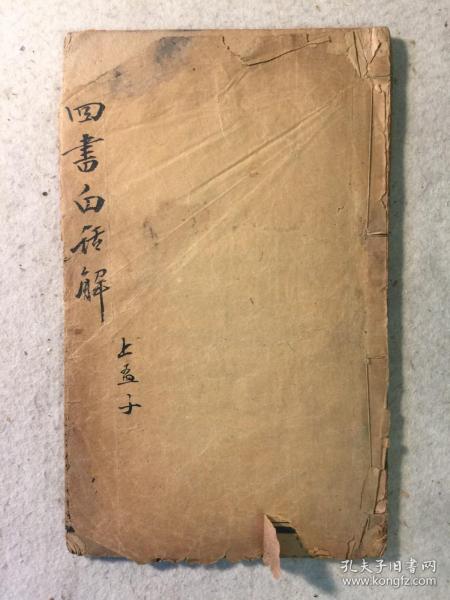 四書白話解
上孟子
孔夫子旧书网
www.kongfz.com